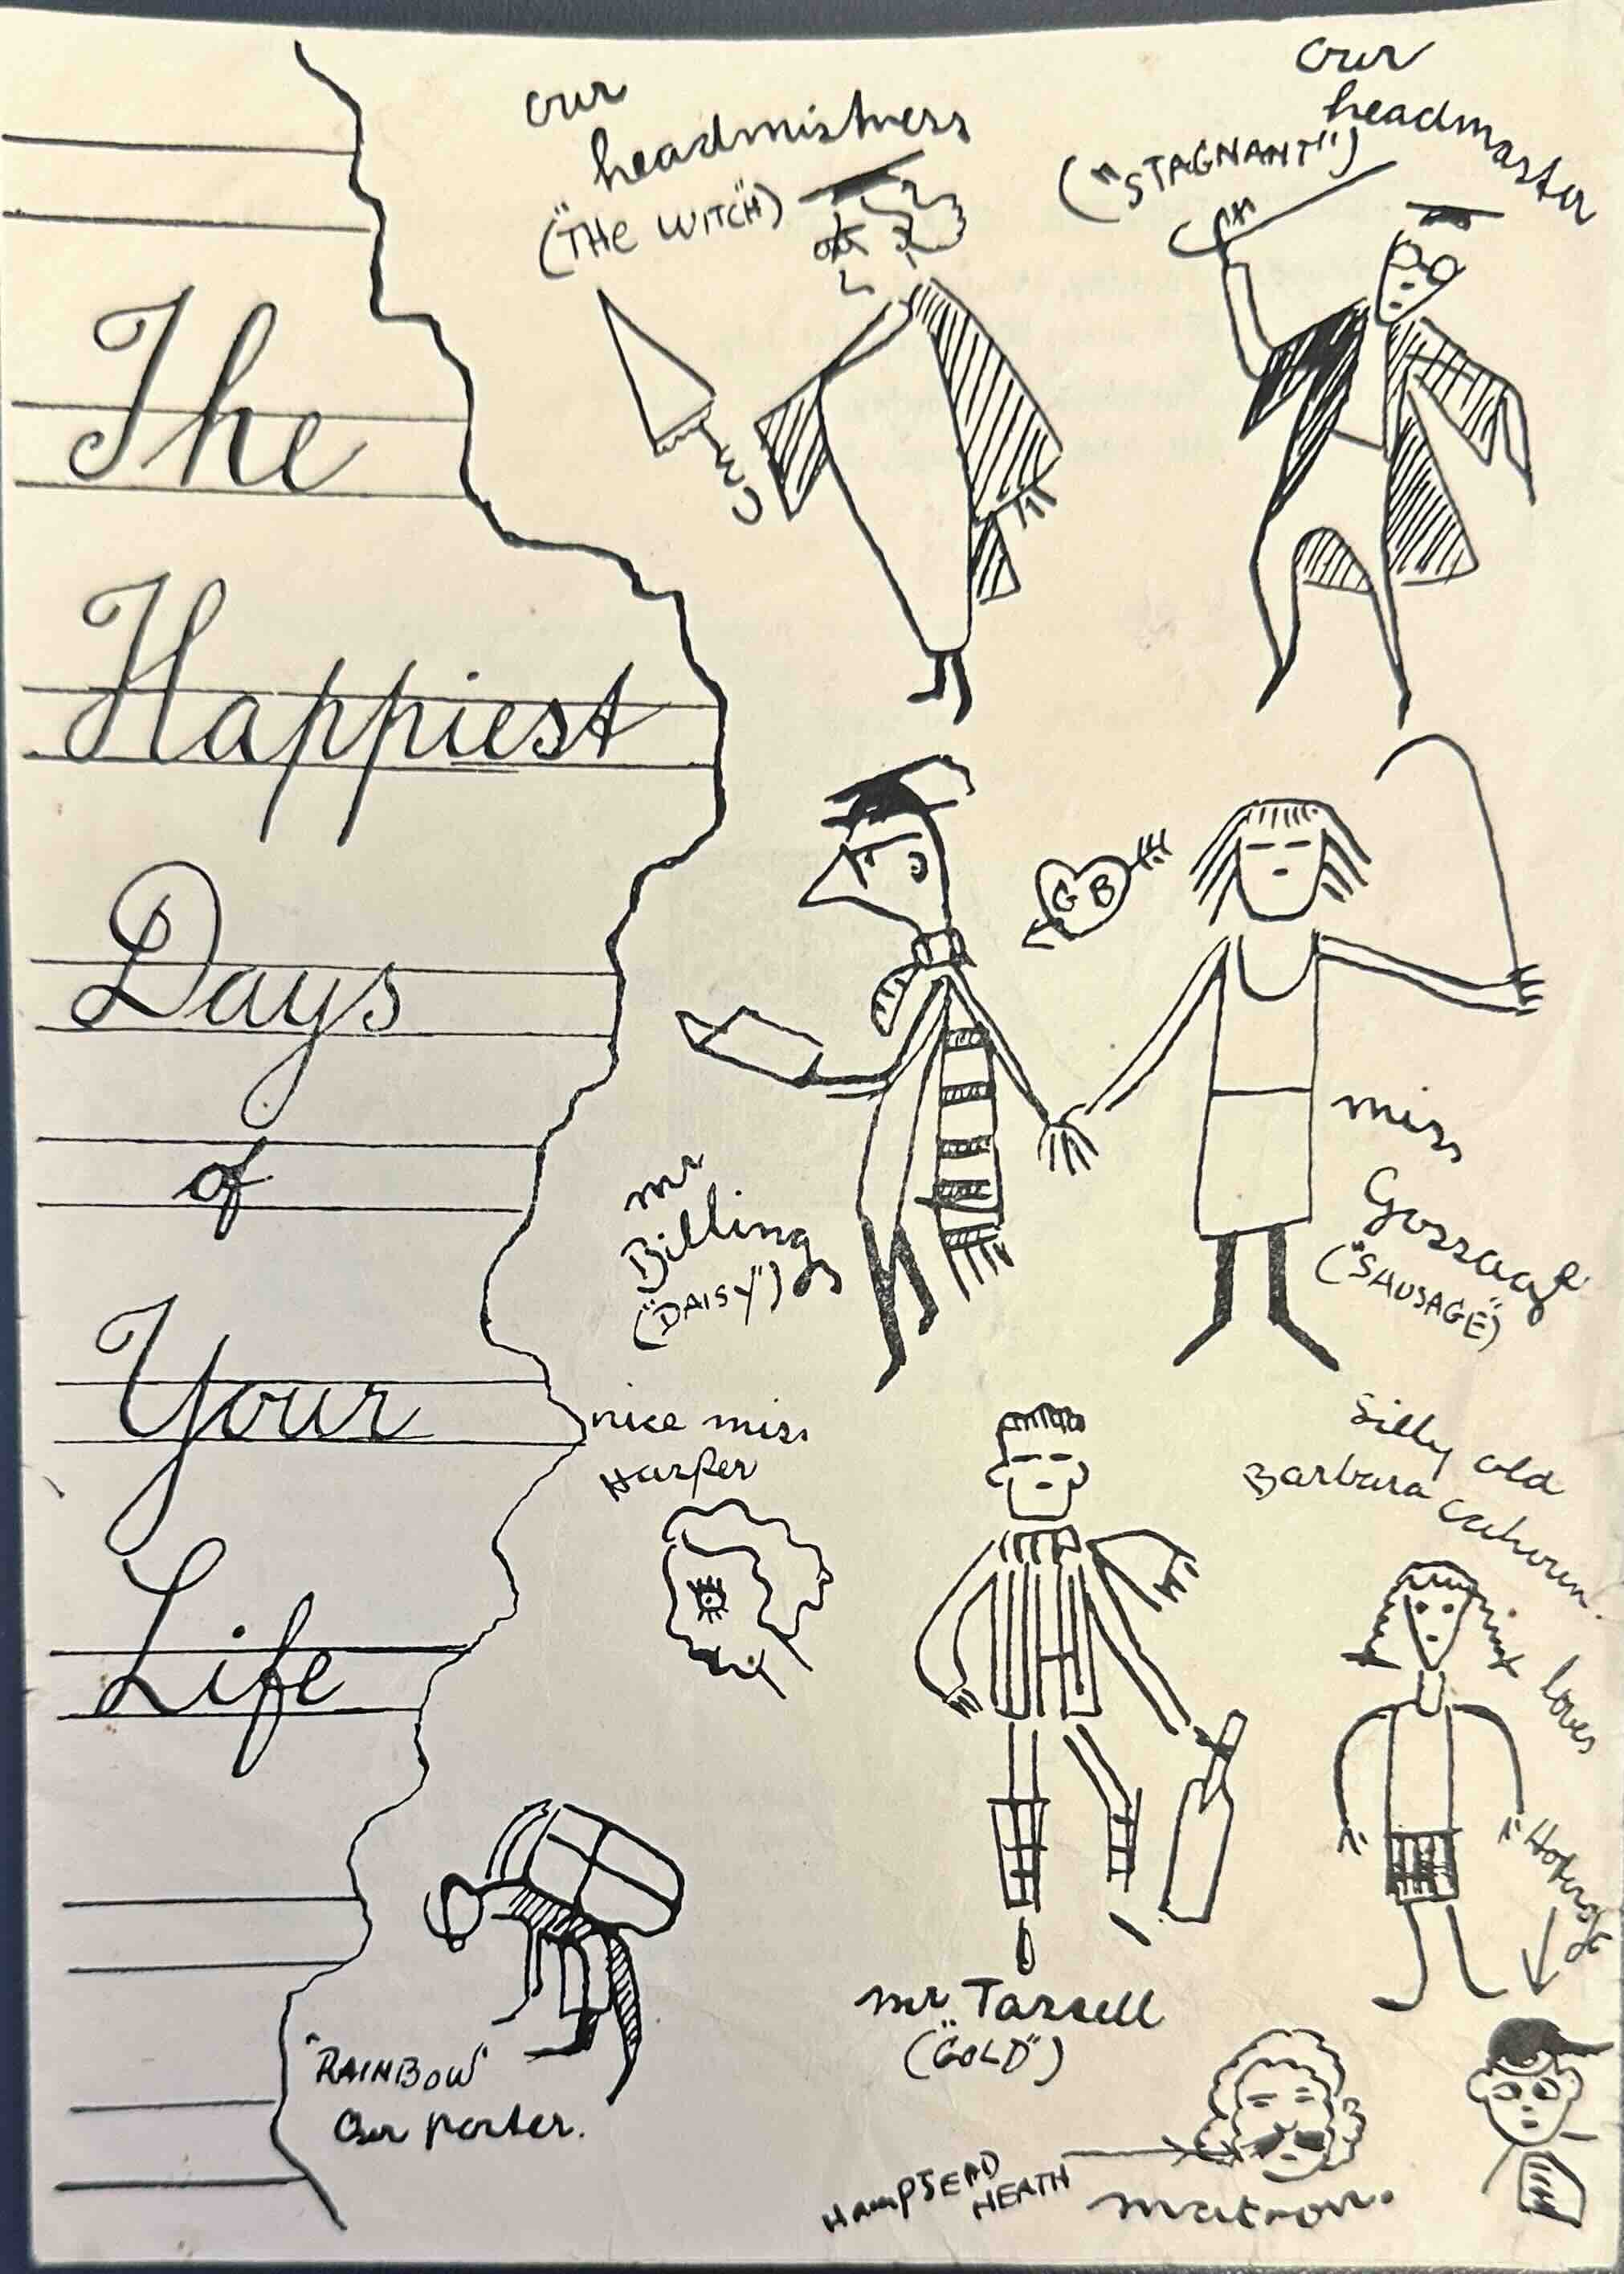 The
Happiest
Days
of
Your
Life
our
headmistress
("THE WITCH")
our
headmaster
("STAGNANT")
G B
mr
Billings
("DAISY")
miss
Gossage
("SAUSAGE")
nice miss
Harper
Silly old
Barbara Cahoun.
loves
mr Tassell
("GOLD")
"RAINBOW"
Our porter.
HAMPSEAD
HEATH
matron.